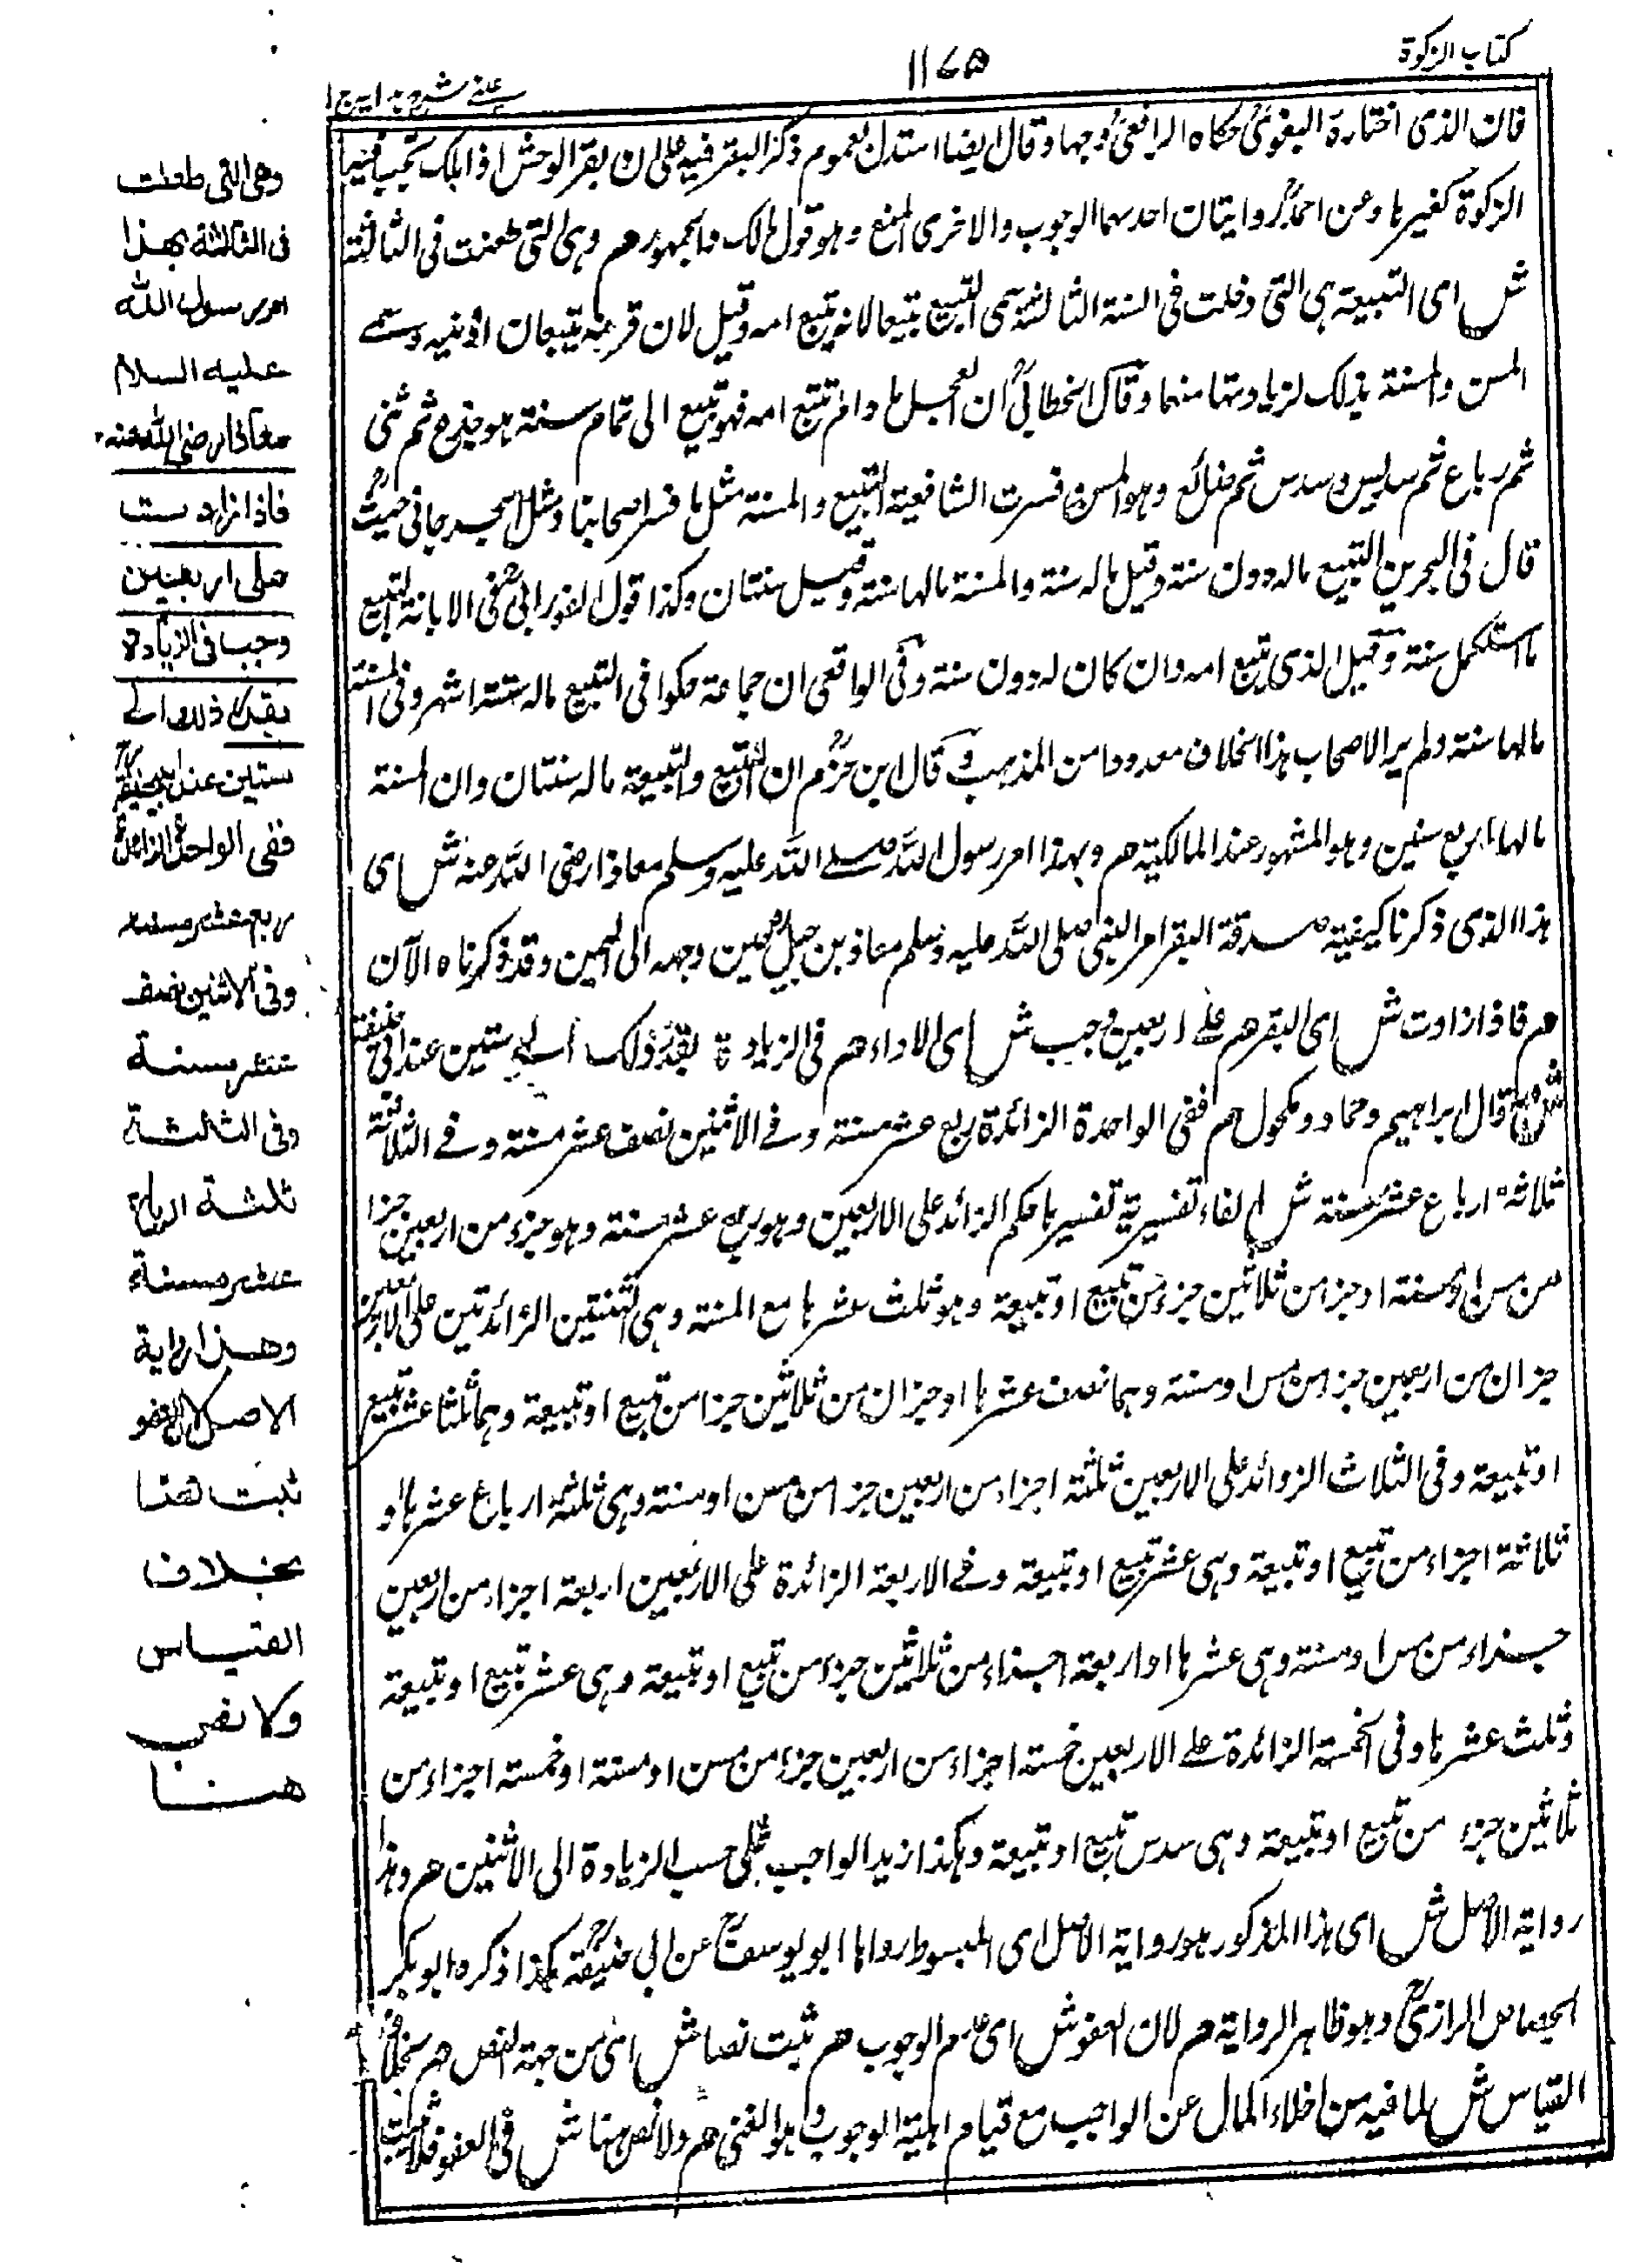 كتاب الزكوة
١١٧٥
عينى شرح هدايه ج ١
فان الذى اختاره البغوىؒ حكاه الرافعىؒ وجها وقال ايضا استدل بعموم ذكر البقر فيه على ان بقر الوحش اذا ملك تجب فيها
الزكوة كغيرها وعن احمدؒ روايتان احدهما الوجوب والاخرى المنع وهو قول مالك والجمهور هم وهى التى طعنت فى الثالثة
ش اى التبيعة هى التى دخلت فى السنة الثالثة سمى التبيع تبيعا لانه يتبع امه وقيل لان قرنيه يتبعان اذنيه وسمى
المسن والمسنة بذلك لزيادتها منهما وقال الخطابىؒ ان العجل ما دام تتبع امه فهو تبيع الى تمام سنة هو جذع ثم ثنى
ثم رباع ثم سديس وسدس ثم ضالع وهو المسن فسرت الشافعية التبيع والمسنة مثل ما فسر اصحابنا ومثل الجرجانى حيث
قال فى البحرين التبيع ماله دون سنة وقيل ماله سنة والمسنة مالها سنة وقيل سنتان وكذا قول الفورانىؒ فى الابانة التبيع
ما استكمل سنة وقيل الذى يتبع امه وان كان له دون سنة وفى الواقعى ان جماعة حكوا فى التبيع ماله ستة اشهر وفى المسنة
مالها سنة ولم ير الاصحاب هذا الخلاف معدودا من المذهب وقال ابن حزمؒ ان التبيع والتبيعة ماله سنتان وان المسنة
مالها اربع سنين وهو المشهور عند المالكية هم وبهذا امر رسول الله صلے الله عليه وسلم معاذا رضى الله عنه ش اى
هذا الذى ذكرنا كيفية صدقة البقر امر النبى صلى الله عليه وسلم معاذ بن جبل حين وجهه الى اليمين وقد ذكرناه الآن
هم فاذا زادت ش اى البقر هم علے اربعين وجب ش اى الاداء هم فى الزيادة بقدر ذلك الے ستين عند ابى حنيفة
ش وبه قال ابراهيم وحماد ومكحول هم ففى الواحدة الزائدة ربع عشر مسنة وفے الاثنين نصف عشر مسنة وفے الثلاثة
ثلاثة ارباع عشر مسنة ش الفاء تفسيرية تفسيرها حكم الزائد على الاربعين وهو ربع عشر مسنة وهو جزء من اربعين جزا
من مسن او مسنة او جزا من ثلاثين جزء من تبيع او تبيعة وهو ثلث عشرها مع المسنة وهى الثنتين الزائدتين على الاربعين
جزان من اربعين جزء من مسن او مسنة وهما نصف عشرها او جزان من ثلاثين جزا من تبيع او تبيعة وهما ثلثا عشر تبيع
او تبيعة وفى الثلاث الزوائد على الاربعين ثلثة اجزاء من اربعين جزء من مسن او مسنة وهى ثلثة ارباع عشرها او
ثلاثة اجزاء من تبيع او تبيعة وهى عشر تبيع او تبيعة وفے الاربعة الزائدة على الاربعين اربعة اجزاء من اربعين
جزاء من مسن او مسنة وهى عشرها او اربعة اجزاء من ثلاثين جزء من تبيع او تبيعة وهى عشر تبيع او تبيعة
وثلث عشرها وفى الخمسة الزائدة علے الاربعين خمسة اجزاء من اربعين جزء من مسن او مسنة او خمسة اجزاء من
ثلاثين جزء من تبيع او تبيعة وهى سدس تبيع او تبيعة وهكذا زيد الواجب على حسب الزيادة الى الاثنين هم وهذا
رواية الاصل ش اى هذا المذكور هو رواية الاصل اى المبسوط رواها ابو يوسفؒ عن ابى حنيفةؒ هكذا ذكره ابو بكر
الجصاص الرازىؒ وهو ظاهر الرواية هم لان العفو ش اى عدم الوجوب هم ثبت نصا ش اى من جهة النص هم بخلاف
القياس ش لما فيه من اخلاء المال عن الواجب مع قيام اهلية الوجوب وهو الغنى هم ولا نص هنا ش فى العفو فلا يثبت
وهى التى طعنت
فى الثالثة بهذا
امر رسول الله
عليه السلام
معاذا رضى الله عنه
فاذا زادت
على اربعين
وجب فى الزيادة
بقدر ذلك الے
ستين عند ابى حنيفةؒ
ففى الواحدة الزائدة
ربع عشر مسنة
وفى الاثنين نصف
عشر مسنة
وفى الثالثة
ثلثة ارباع
عشر مسنة
وهذا رواية
الاصل لان العفو
ثبت نصا
بخلاف
القياس
ولا نص
هنا